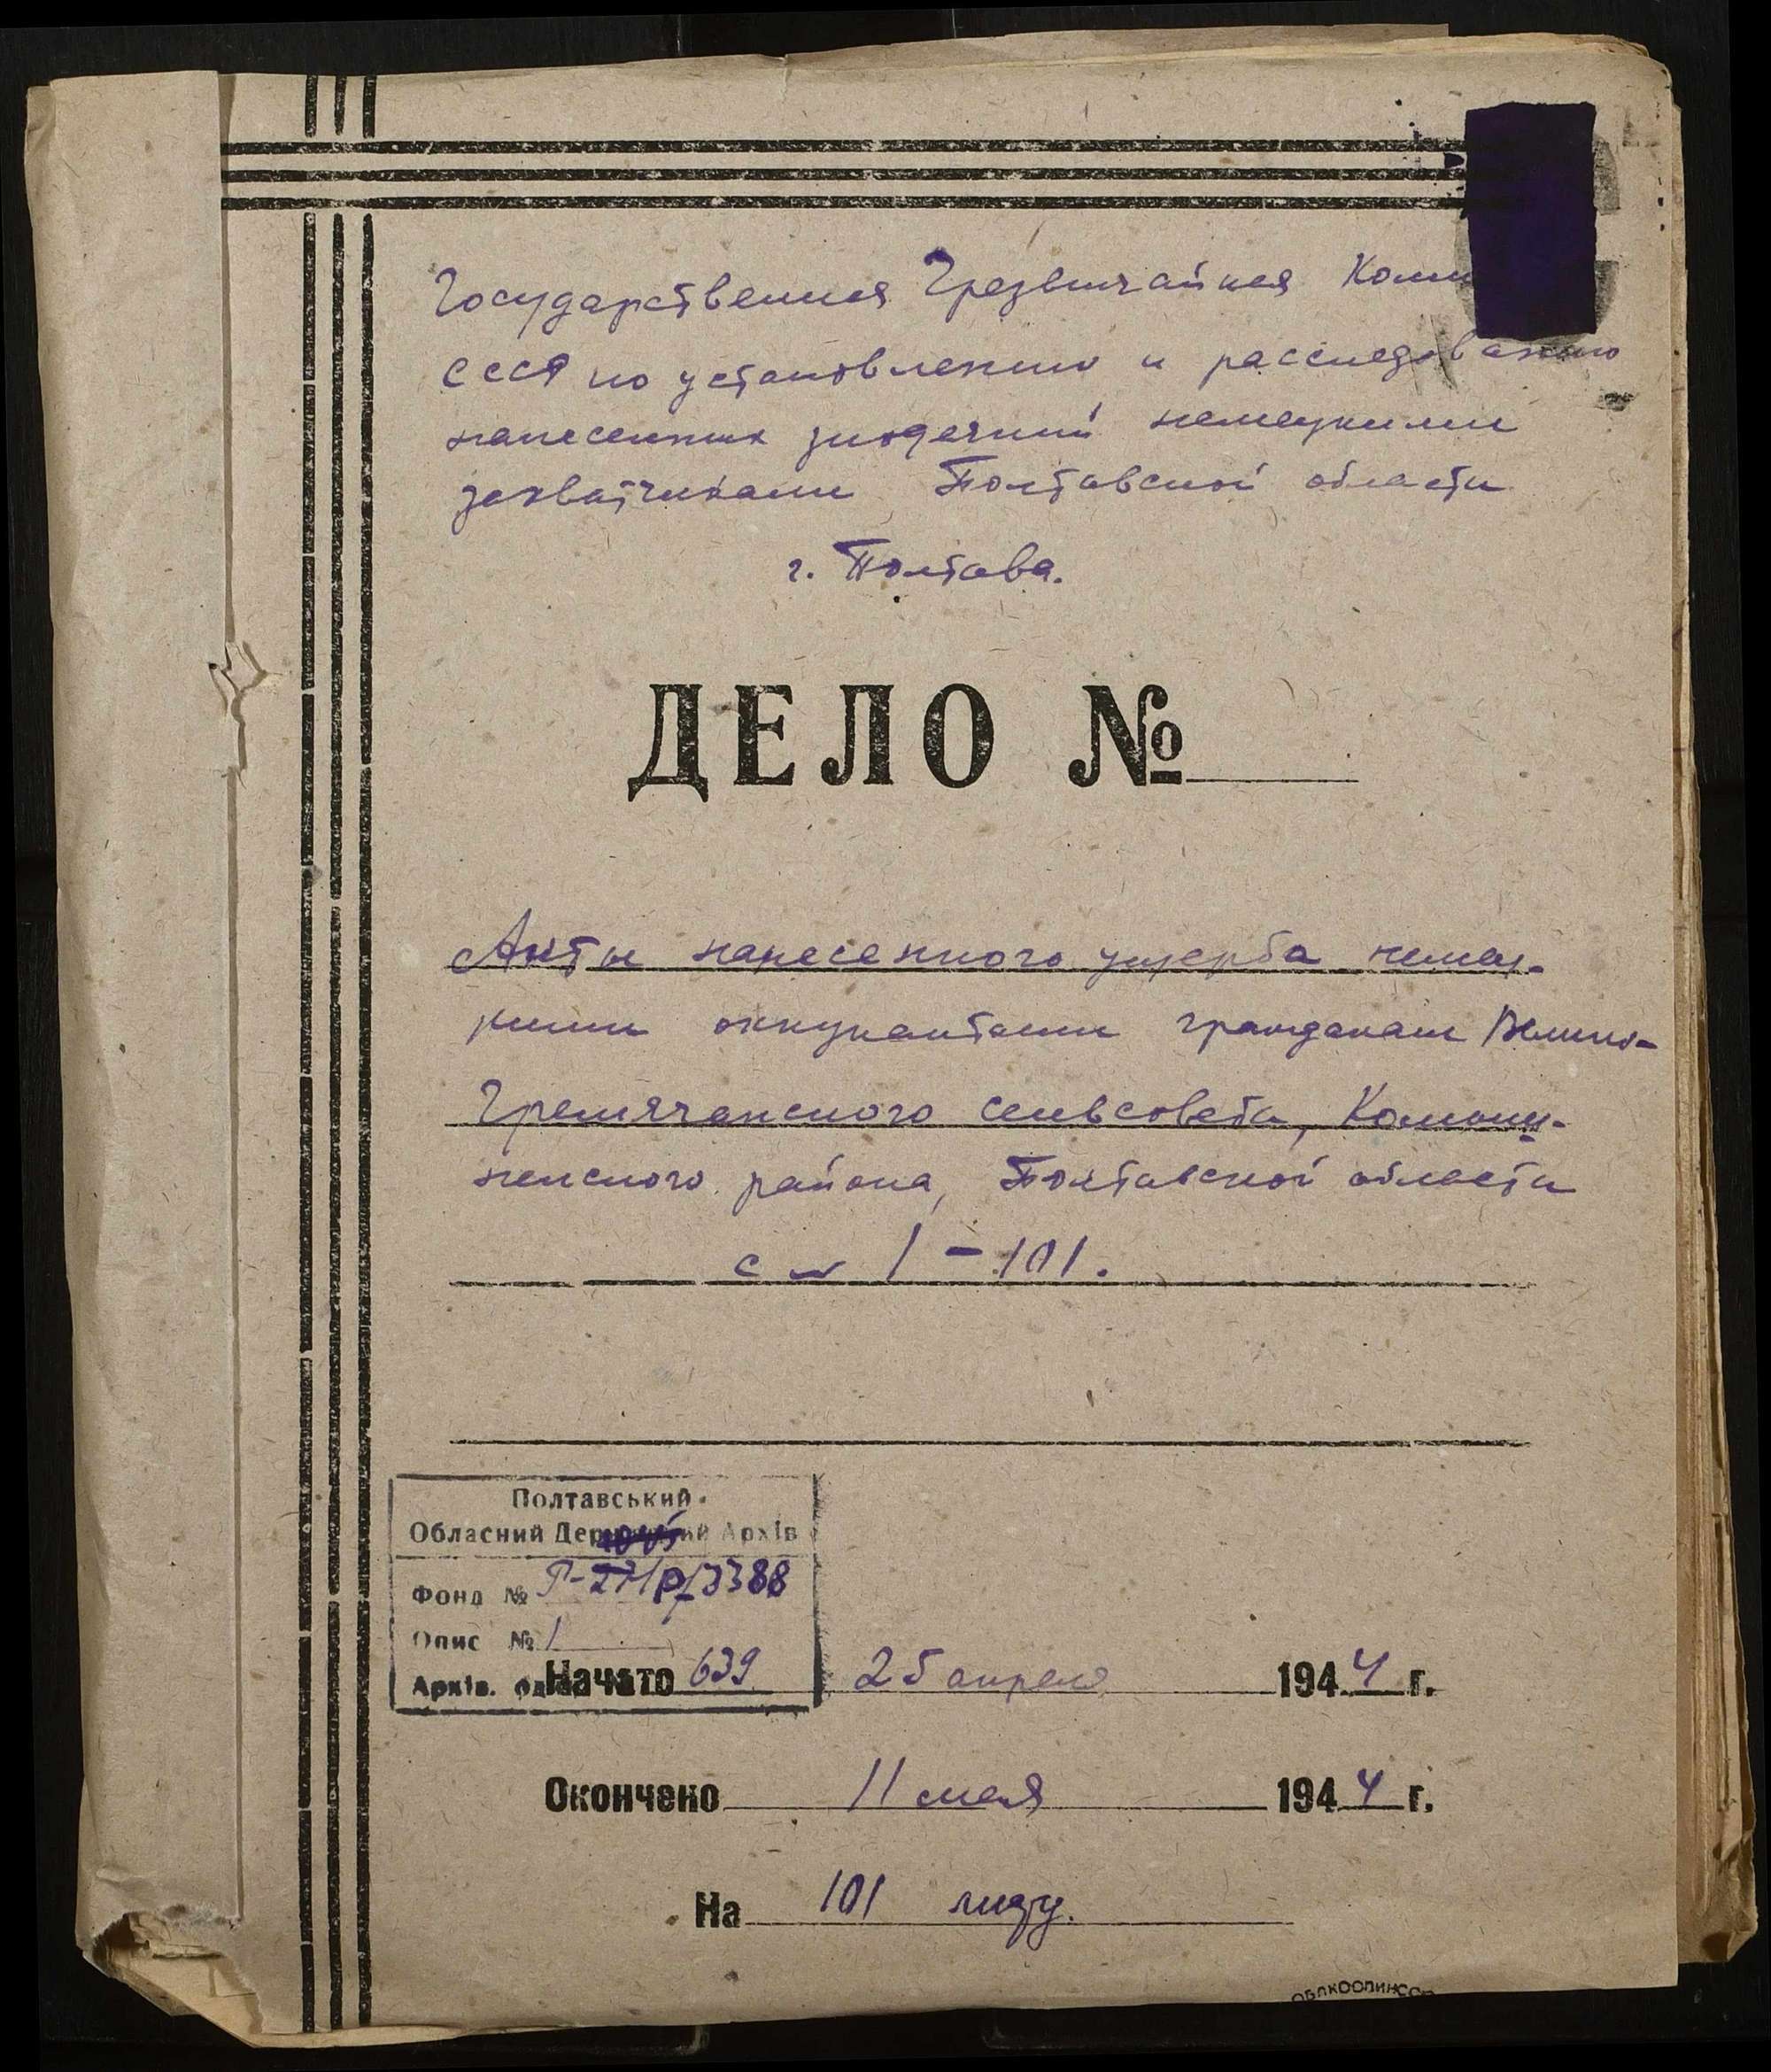 Государственная Чрезвычайная Коми
СССР по установлению и расследованию
нанесенных злодеяний немецкими
захватчиками Полтавской области
г. Полтава.
ДЕЛО №
Акты нанесенного ущерба немец-
кими оккупантами гражданам Велико-
Кремячанского сельсовета, Комыш-
неского района, Полтавской области
с № 1 – 101.
Полтавський
Обласний Державний Архів
Фонд № Р-3388
Опис № 1
Архів. од. 639
Начато 25 апреля 1944 г.
Окончено 11 мая 1944 г.
На 101 лицу.